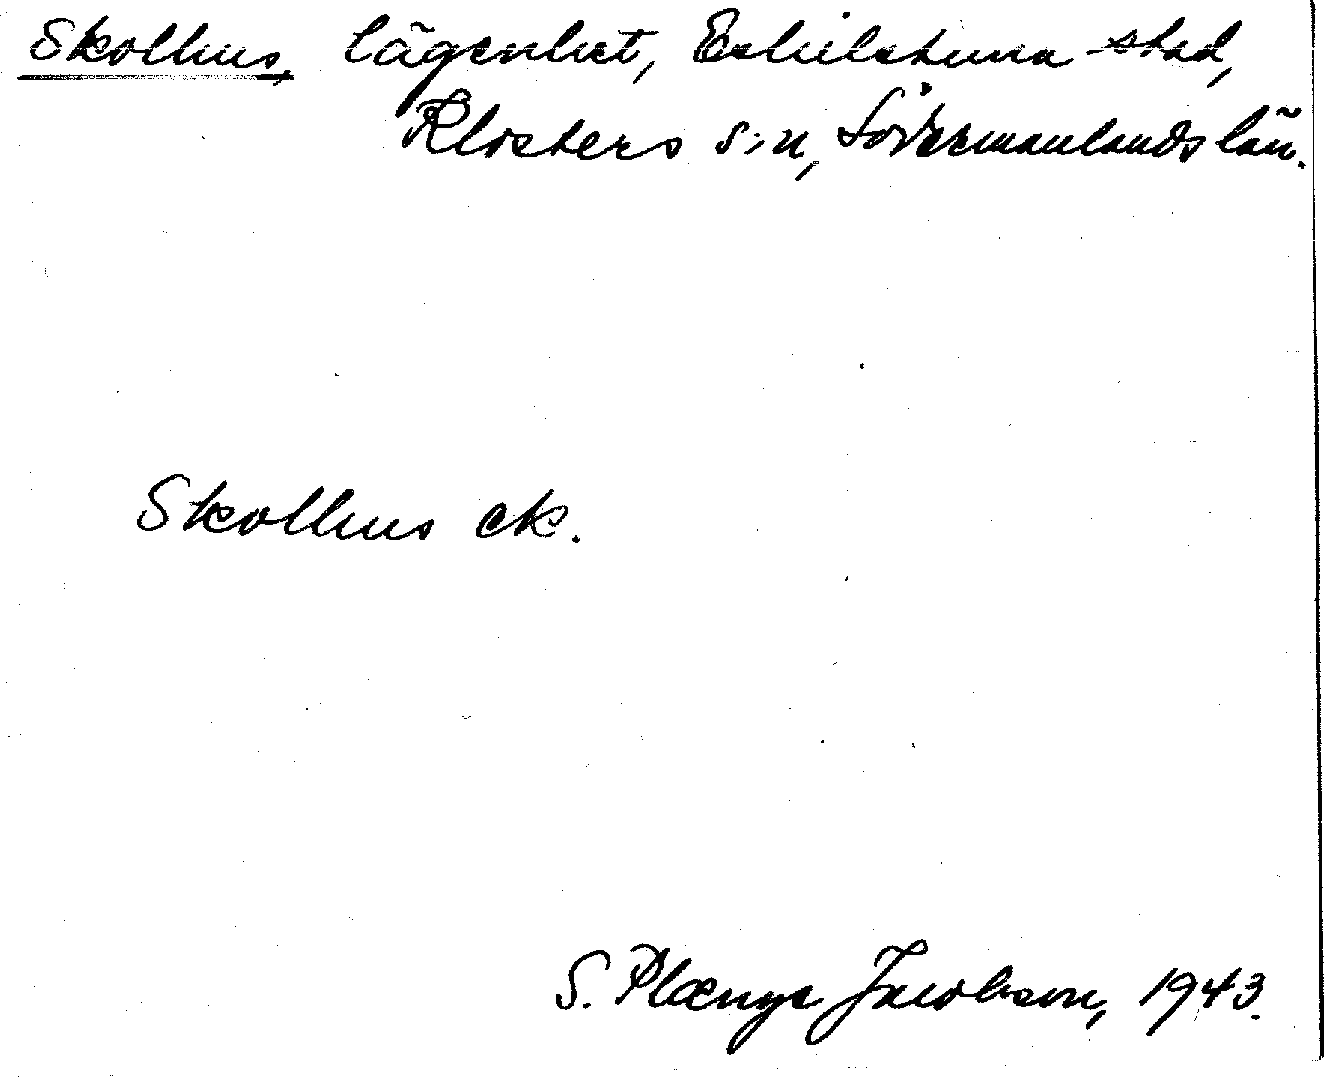 Skolhus, lägenhet, Eskilstuna stad,
Klosters s:n, Södermanlands län.
Skolhus ek.
S. Plænge Jacobson, 1943.